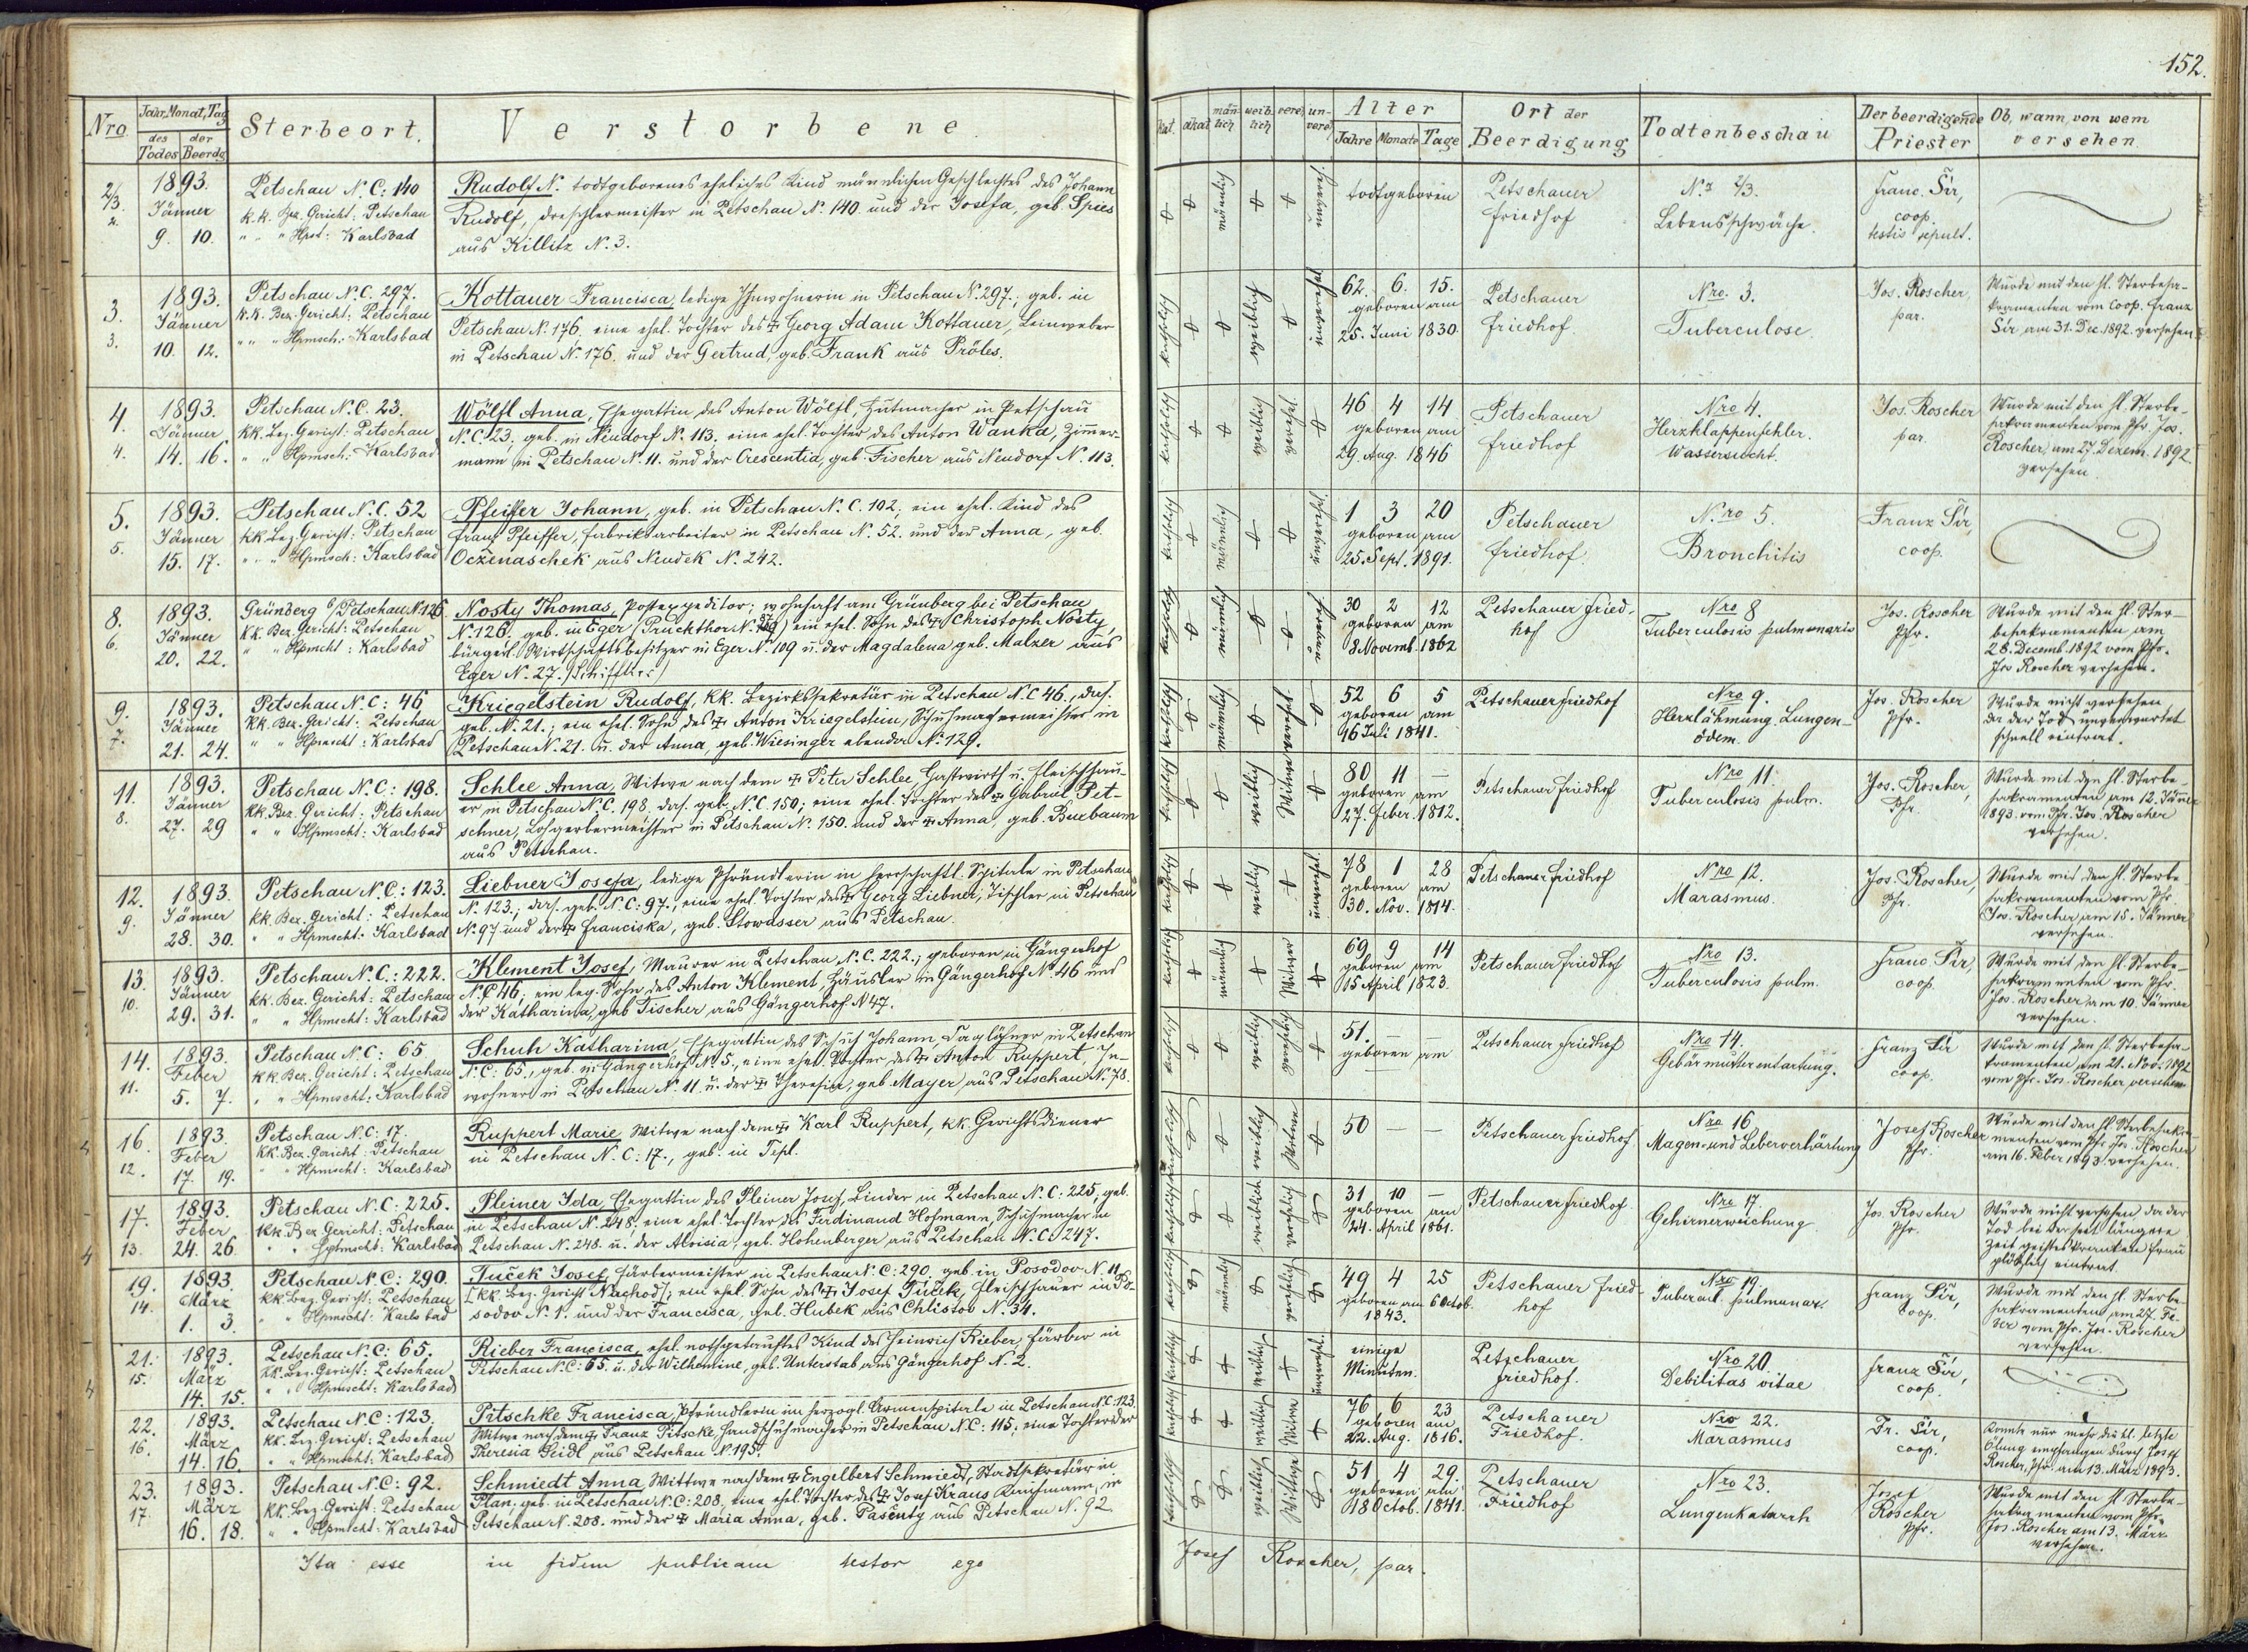 152.
Nro
Jahr, Monat, Tag
des Todes
der Beerdg
Sterbeort.
Verstorbene
kat.
akat.
männlich
weiblich
vereh.
unvereh.
Alter
Jahre Monate Tage
Ort der Beerdigung
Todtenbeschau
Der beerdigende Priester
Ob, wann, von wem versehen.
2/3.
2.
1893.
Jänner
9. 10.
Petschau N. C: 140
k. k. Bez. Gericht: Petschau
" " " Hpst: Karlsbad
Rudolf N. todtgeborenes eheliches Kind männlichen Geschlechtes des Johann
Rudolf, Drechslermeister in Petschau N. 140 und der Josefa, geb. Spies
aus Killitz N. 3.
männlich
unvereh.
todtgeboren
Petschauer
Friedhof
No 2/3.
Lebensschwäche.
Franc. Šír,
coop.
testis sepult.
3.
3.
1893.
Jänner
10. 12.
Petschau N. C. 297.
k. k. Bez. Gericht: Petschau
" " " Hpmsch: Karlsbad
Kottauer Francisca, ledige Inwohnerin in Petschau N. 297., geb. in
Petschau N. 176, eine ehel. Tochter des ✝ Georg Adam Kottauer, Leinweber
in Petschau N. 176. und der Gertrud, geb. Frank aus Pröles.
katholisch
weiblich
unverehel.
62. 6. 15.
geboren am
25. Juni 1830.
Petschauer
Friedhof.
Nro. 3.
Tuberculose.
Jos. Roscher,
par.
Wurde mit den hl. Sterbesa-
kramenten vom Coop. Franz
Šír am 31. Dec. 1892. versehen.
4.
4.
1893.
Jänner
14. 16.
Petschau N. C. 23.
kk. Bez. Gericht: Petschau
" " Hpmsch: Karlsbad
Wölfl Anna, Ehegattin des Anton Wölfl, Hutmacher in Petschau
N. C. 23, geb. in Neudorf N. 113. eine ehel. Tochter des Anton Wanka, Zimmer-
mann in Petschau N. 11. und der Crescentia, geb. Fischer aus Neudorf N. 113.
katholisch
weiblich
verehel.
46 4 14
geboren am
29. Aug. 1846
Petschauer
Friedhof
Nro 4.
Herzklappenfehler.
Wassersucht.
Jos. Roscher
par.
Wurde mit den hl. Sterbe-
sakramenten vom Pfr. Jos.
Roscher, am 27. Dezem. 1892.
versehen.
5.
5.
1893.
Jänner
15. 17.
Petschau N. C. 52
kk. Bez. Gericht: Petschau
" " " Hpmsch: Karlsbad
Pfeiffer Johann, geb. in Petschau N. C. 102, ein ehel. Kind des
Franz Pfeiffer, Fabriksarbeiter in Petschau N. 52. und der Anna, geb.
Ocženaschek aus Neudek N. 242.
katholisch
männlich
unverehel.
1 3 20
geboren am
25. Sept. 1891.
Petschauer
Friedhof.
N.ro 5.
Bronchitis
Franz Šír,
coop.
8.
6.
1893.
Jänner
20. 22.
Grünberg b/Petschau N. 126
kk. Bez. Gericht: Petschau
" " Hpmcht: Karlsbad
Nosty Thomas, Postexpeditor; wohnhaft am Grünberg bei Petschau
N. 126. geb. in Eger (Pruckthor N. ) ein ehel. Sohn des ✝ Christoph Nosty,
bürgerl. Wirtschaftsbesitzer in Eger N. 109 u. der Magdalena geb. Malzer aus
Eger N. 27.
katholisch
männlich
unvereh.
30 2 12
geboren am
8. Novemb. 1862
Petschauer Fried-
hof
Nro 8
Tuberculosis pulmonaris
Jos. Roscher
Pfr.
Wurde mit den hl. Ster-
besakramenten am
28. Decemb. 1892 vom Pfr.
Jos. Roscher versehen.
9.
7.
1893.
Jänner
21. 24.
Petschau N. C: 46
kk. Bez. Gericht: Petschau
" " Hpmscht: Karlsbad
Kriegelstein Rudolf, kk. Bezirkssekretär in Petschau N. C 46., das.
geb. N. 21.; ein ehel. Sohn des ✝ Anton Kriegelstein, Schuhmachermeister in
Petschau N. 21. u. der Anna, geb. Wiesinger ebendor N. 129.
katholisch
männlich
verehel.
52 6 5
geboren am
16 Juli 1841.
Petschauer Friedhof
Nro 9.
Herzlähmung. Lungen-
ödem.
Jos. Roscher
Pfr.
Wurde nicht versehen
da der Tod unerwartet
schnell eintrat.
11.
8.
1893.
Jänner
27. 29
Petschau N. C: 198.
kk. Bez. Gericht: Petschau
" " Hpmscht: Karlsbad
Schlee Anna, Witwe nach dem ✝ Peter Schlee, Gastwirth u. Fleischhau-
er in Petschau N. C. 198, das. geb. N. C. 150; eine ehel. Tochter des ✝ Gabriel Pet-
schner, Lohgerbermeister in Petschau N. 150. und der ✝ Anna, geb. Buxbaum
aus Petschau.
katholisch
weiblich
Witwe
80 11 —
geboren am
27. Feber. 1812.
Petschauer Friedhof
Nro 11.
Tuberculosis pulm.
Jos. Roscher,
Pfr.
Wurde mit den hl. Sterbe-
sakramenten am 12. Jänner
1893. vom Pfr. Jos. Roscher
versehen.
12.
9.
1893.
Jänner
28. 30.
Petschau N. C: 123.
kk. Bez. Gericht: Petschau
" " Hpmscht: Karlsbad
Liebner Josefa, ledige Pfründlerin im herrschaftl. Spitale in Petschau
N. 123., das. geb. N. C: 97., eine ehel. Tochter des ✝ Georg Liebner, Tischler in Petschau
N. 97 und der ✝ Franciska, geb. Stowasser aus Petschau.
katholisch
weiblich
unverehel.
78 1 28
geboren am
30. Nov. 1814.
Petschauer Friedhof
Nro 12.
Marasmus.
Jos. Roscher,
Pfr.
Wurde mit den hl. Sterbe-
sakramenten vom Pfr.
Jos. Roscher am 15. Jänner
versehen.
13.
10.
1893.
Jänner
29. 31.
Petschau N. C: 222.
kk. Bez. Gericht: Petschau
" " Hpmscht: Karlsbad
Klement Josef, Maurer in Petschau N. C. 222., geboren in Gängerhof
N. C 46; ein leg. Sohn des Anton Klement, Häusler in Gängerhof N. 46 und
der Katharina, geb Fischer aus Gängerhof N 47.
katholisch
männlich
Witwer
69 9 14
geboren am
15 April 1823.
Petschauer Friedhof
Nro 13.
Tuberculosis pulm.
Franc Šír,
coop.
Wurde mit den hl. Sterbe-
sakramenten vom Pfr.
Jos. Roscher, am 10. Jänner
versehen.
14.
11.
1893.
Feber
5. 7.
Petschau N. C: 65
kk. Bez. Gericht: Petschau
" " Hpmscht: Karlsbad
Schuh Katharina, Ehegattin des Schuh Johann, Taglöhner in Petschau
N. C: 65., geb. in Gängerhof N. 5., eine ehel. Tochter des ✝ Anton Ruppert, In-
wohner in Petschau N. 11. u. der ✝ Theresia, geb Mayer, aus Petschau N. 78.
katholisch
weiblich
verehelich
51. — —
geboren am
—
Petschauer Friedhof
Nro 14.
Gebärmutterentartung.
Franz Šír
coop.
Wurde mit den hl. Sterbesa-
kramenten, am 21. Nov. 1892
vom Pfr. Jos. Roscher, versehen
16.
12.
1893.
Feber
17. 19.
Petschau N. C: 17.
kk. Bez. Gericht: Petschau
" " Hpmscht: Karlsbad
Ruppert Marie, Witwe nach dem ✝ Karl Ruppert, kk. Gerichtsdiener
in Petschau N. C: 17., geb. in Tepl.
katholisch
weiblich
Witwe
50 — —
Petschauer Friedhof
Nro 16
Magen- und Leberverhärtung
Josef Roscher
Pfr.
Wurde mit den hl. Sterbesakra-
menten vom Pfr. Jos. Roscher
am 16. Feber 1893 versehen.
17.
13.
1893.
Feber
24. 26.
Petschau N. C: 225.
kk. Bez. Gericht: Petschau
" " Hptmscht: Karlsbad
Pleiner Ida, Ehegattin des Pleiner Josef, Binder in Petschau N. C: 225, geb.
in Petschau N. 248. eine ehel. Tochter des Ferdinand Hofmann, Schuhmacher in
Petschau N. 248. u. der Aloisia, geb. Hohenberger, aus Petschau N. C. 247.
katholisch
weiblich
verehelich
31 10 —
geboren am
24. April 1861.
Petschauer Friedhof
Nro 17.
Gehirnerweichung
Jos. Roscher
Pfr.
Wurde nicht versehen da der
Tod bei der seit längere
Zeit geisteskranken Frau
plötzlich eintrat.
19.
14.
1893.
März
1. 3.
Petschau N. C: 290.
kk. Bez. Gericht: Petschau
" " Hpmscht: Karlsbad
Tuček Josef, Färbermeister in Petschau N. C: 290, geb. in Posodov N. 11
[kk. Bez. Gericht Nachod]; ein ehel. Sohn des ✝ Josef Tuček, Fleischhauer in Po-
sodov N. 1. und der Francisca, geb. Hubek aus Chlistov N. 34.
katholisch
männlich
verehelich
49 4 25
geboren am 6 Octob.
1843.
Petschauer Fried-
hof
Nro 19.
Tubercul. pulmonar.
Franz Šír,
Coop.
Wurde mit den hl. Sterbe-
sakramenten am 27. Fe-
ber vom Pfr. Jos. Roscher
versehen.
21.
15.
1893.
März
14. 15.
Petschau N. C: 65.
kk. Bez. Gericht: Petschau
" " Hpmscht: Karlsbad
Rieber Francisca, ehel. nothgetauftes Kind des Heinrich Rieber, Färber in
Petschau N. C: 65. u. der Wilhemine, geb. Unterstab aus Gängerhof N. 2.
katholisch
weiblich
unverehel.
einige
Minuten.
Petschauer
Friedhof.
Nro 20.
Debilitas vitae
Franz Šír,
coop.
22.
16.
1893.
März
14. 16.
Petschau N. C: 123.
kk. Bez. Gericht: Petschau
" " Hpmscht. Karlsbad
Pitschke Francisca, Pfründlerin im herzogl. Armenspitale in Petschau N. C. 123.
Witwe nach dem ✝ Franz Pitscke, Handschuhmacher in Petschau N. C: 115; eine Tochter der
Theresia Seidl aus Petschau N. 195.
katholisch
weiblich
Witwe
76 6 23
geboren am
22. Aug. 1816.
Petschauer
Friedhof.
Nro 22.
Marasmus
Fr. Šír,
coop.
Konnte nur mehr die hl. letzte
Ölung empfangen durch Josef
Roscher, Pfr. am 13. März 1893.
23.
17.
1893.
März
16. 18.
Petschau N. C: 92.
kk. Bez. Gericht: Petschau
" " Hpmscht: Karlsbad
Schmiedt Anna, Wittwe nach dem ✝ Engelbert Schmiedt, Stadtsekretär in
Plan, geb. in Petschau N. C: 208, eine ehel. Tochter des ✝ Josef Kraus Kaufmann, in
Petschau N. 208. und der ✝ Maria Anna, geb. Pasčuty aus Petschau N. 92
katholisch
weiblich
Wittwe
51 4 29.
geboren am
18 Octob. 1841.
Petschauer
Friedhof
Nro 23.
Lungenkatarrh
Josef
Roscher
Pfr.
Wurde mit den hl Sterbe-
sakramenten vom Pfr.
Jos. Roscher am 13. März
versehen.
Ita esse in fidem publicam testor ego
Josef Roscher, par.